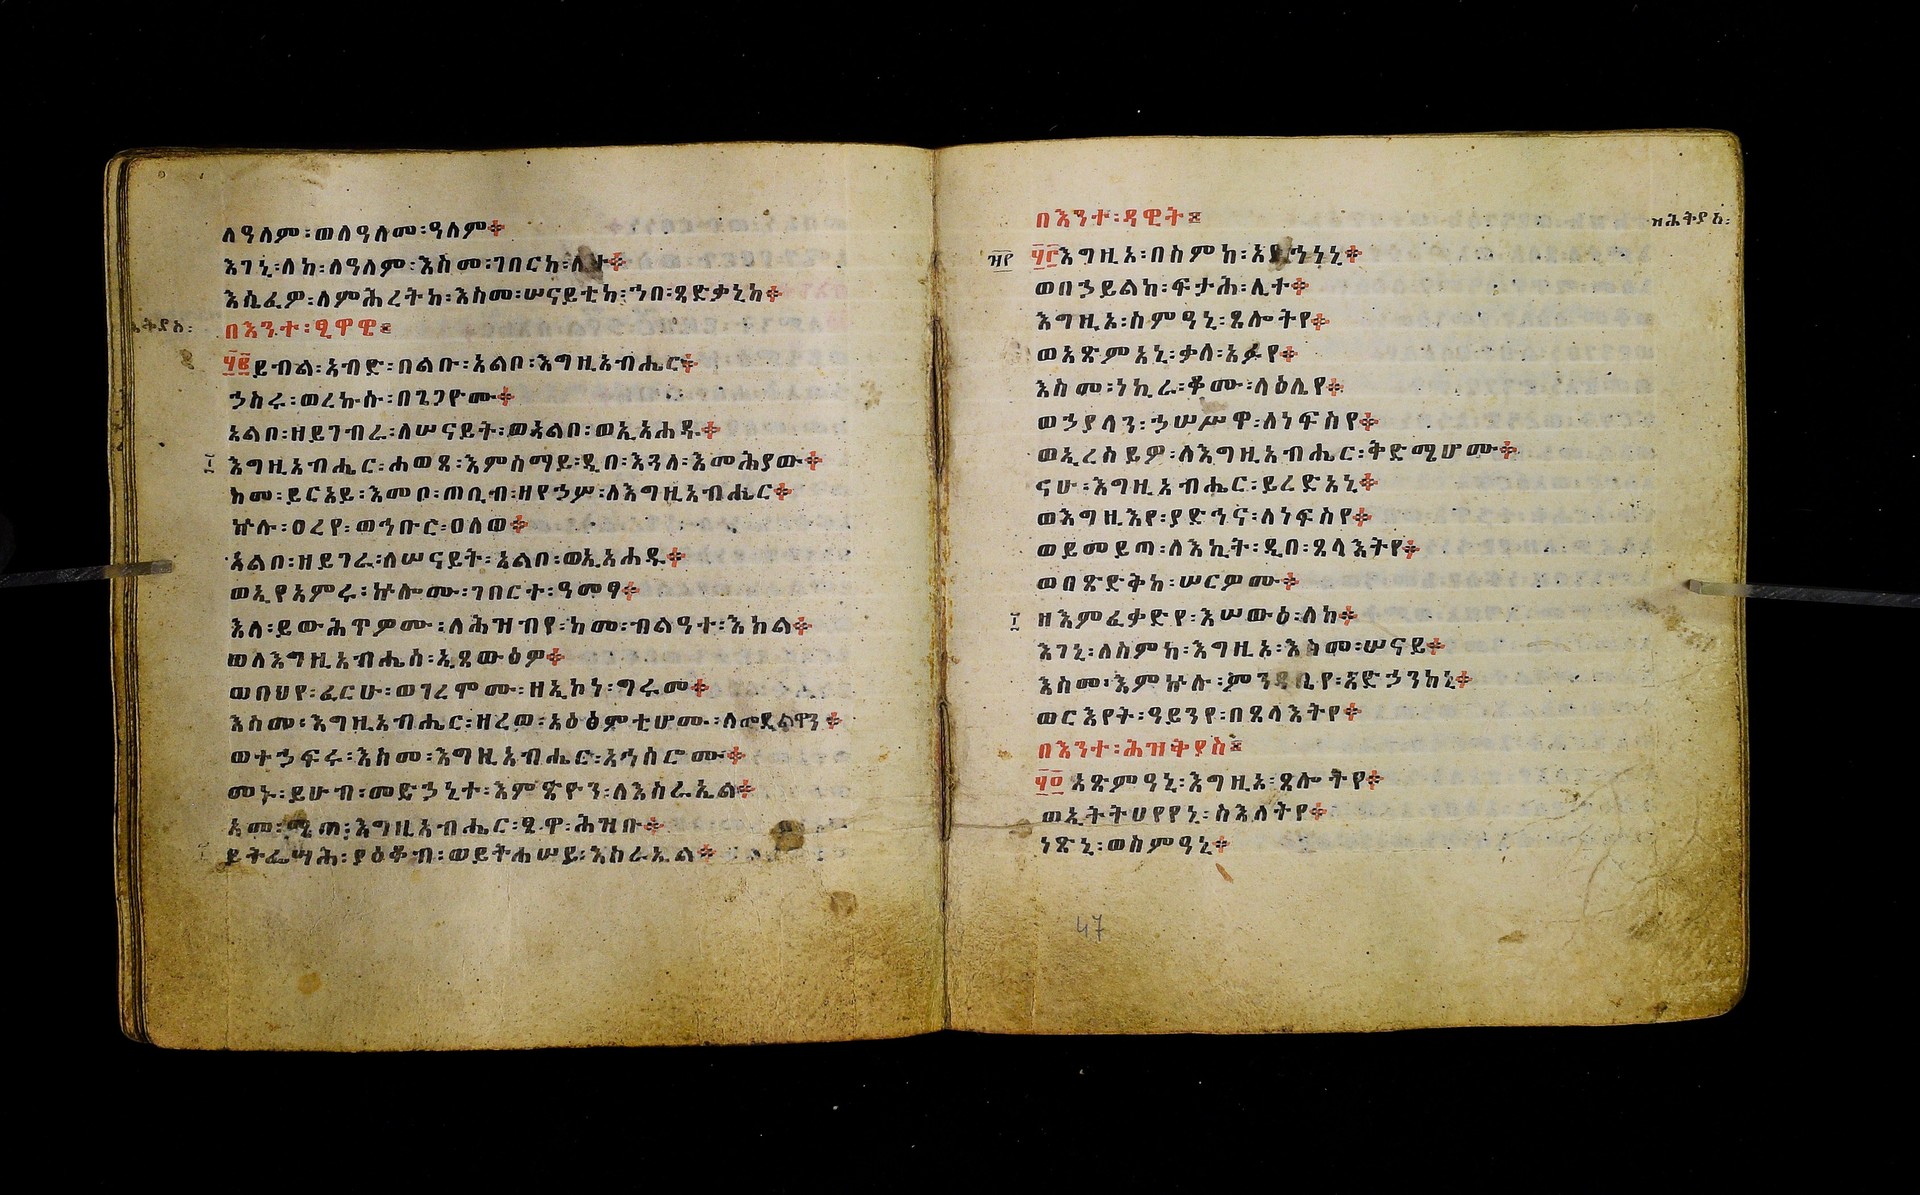 ለዓለም፡ወለዓለመ፡ዓለም፨
እገኒ፡ለከ፡ለዓለም፡እስመ፡ገበርከ፡ሊተ፨
እሴፈዎ፡ለምሕረትከ፡እስመ፡ሠናይቲከ፡ኀበ፡ጻድቃኒከ፨
በእንተ፡ፄዋዊ፡፡
፶፪ይብል፡አብድ፡በልቡ፡አልቦ፡እግዚአብሔር፨
ኃስሩ፡ወረኩሱ፡በጌጋዮሙ፨
አልቦ፡ዘይገብራ፡ለሠናይት፡ወአልቦ፡ወኢአሐዱ፨
፲ እግዚአብሔር፡ሐወጸ፡እምሰማይ፡ዲበ፡እጓለ፡እመሕያው፨
ከመ፡ይርአይ፡እመቦ፡ጠቢብ፡ዘየኃሦ፡ለእግዚአብሔር፨
ኵሉ፡ዐረየ፡ወኅቡር፡ዐለወ፨
አልቦ፡ዘይገራ፡ለሠናይት፡አልቦ፡ወኢአሐዱ፨
ወኢየአምሩ፡ኵሎሙ፡ገበርተ፡ዓመፃ፨
እለ፡ይውሕጥዎሙ፡ለሕዝብየ፡ከመ፡ብልዓተ፡እክል፨
ወለእግዚአብሔሰ፡ኢጸውዕዎ፨
ወበህየ፡ፈርሁ፡ወገረሞሙ፡ዘኢኮነ፡ግሩመ፨
እስመ፡እግዚአብሔር፡ዘረወ፡አዕፅምቲሆሙ፡ለመደልዋን፨
ወተኃፍሩ፡እስመ፡እግዚአብሔር፡አኅሰሮሙ፨
መኑ፡ይሁብ፡መድኃኒተ፡እምጽዮን፡ለእስራኤል፨
አመ፡ሜጠ፡እግዚአብሔር፡ፄዋ፡ሕዝቡ፨
ይትፌሣሕ፡ያዕቆብ፡ወይትሐሠይ፡እስራኤል፨
በእንተ፡ዳዊት፡፡
፶፫እግዚአ፡በስምከ፡አድኅነኒ፨
ወበኃይልከ፡ፍታሕ፡ሊተ፨
እግዚአ፡ስምዓኒ፡ጸሎትየ፨
ወአጽምአኒ፡ቃለ፡አፉየ፨
እስመ፡ነኪራ፡ቆሙ፡ላዕሌየ፨
ወኃያላን፡ኃሠሥዋ፡ለነፍስየ፨
ወኢረሰይዎ፡ለእግዚአብሔር፡ቅድሜሆሙ፨
ናሁ፡እግዚአብሔር፡ይረድአኒ፨
ወእግዚእየ፡ያድኅና፡ለነፍስየ፨
ወይመይጣ፡ለእኪት፡ዲበ፡ጸላእትየ፨
ወበጽድቅከ፡ሠርዎሙ፨
፲ ዘእምፈቃድየ፡እሠውዕ፡ለከ፨
እገኒ፡ለስምከ፡እግዚኦ፡እስመ፡ሠናይ፨
እስመ፡እምኵሉ፡ምንዳቤየ፡አድኃንከኒ፨
ወርእየት፡ዓይንየ፡በጸላእትየ፨
በእንተ፡ሕዝቅያስ፡፡
፶፬ አጽምዓኒ፡እግዚአ፡ጸሎትየ፨
ወኢትትሀየየኒ፡ስእለትየ፨
ነጽኒ፡ወስምዓኒ፨
47